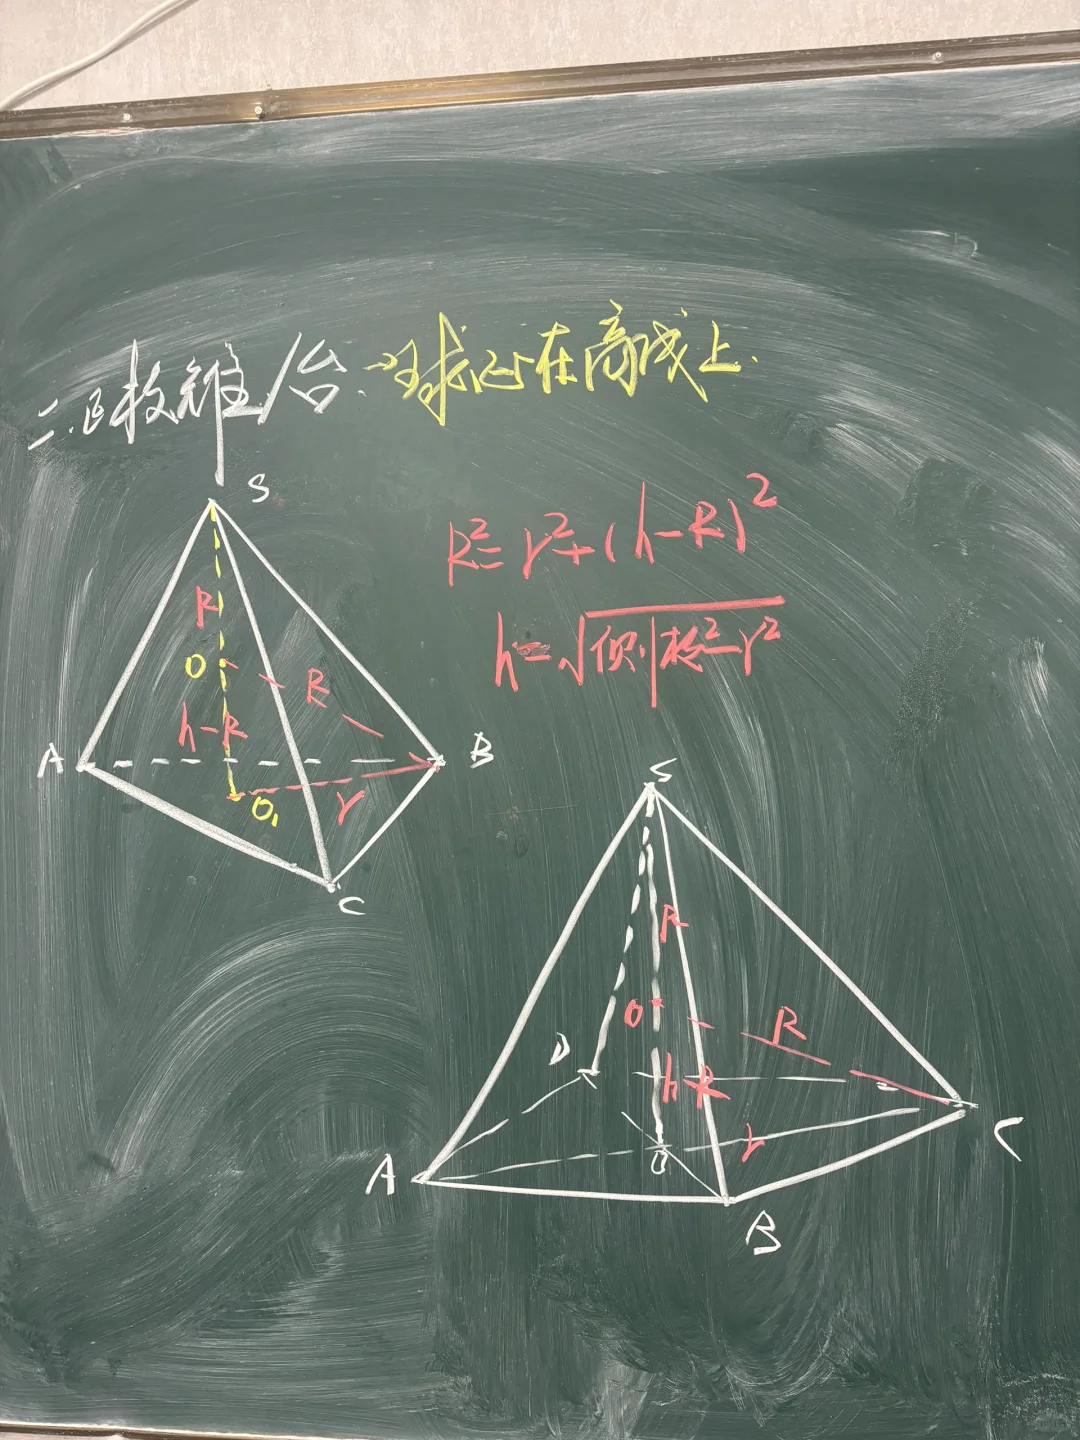 二.正棱锥/台. 球心在高线上.
R²=r²+(h-R)²
h=√侧棱²-r²
S
R
O
R
h-R
A
B
O₁
r
C
S
R
O
R
D
h-R
r
C
A
O
B